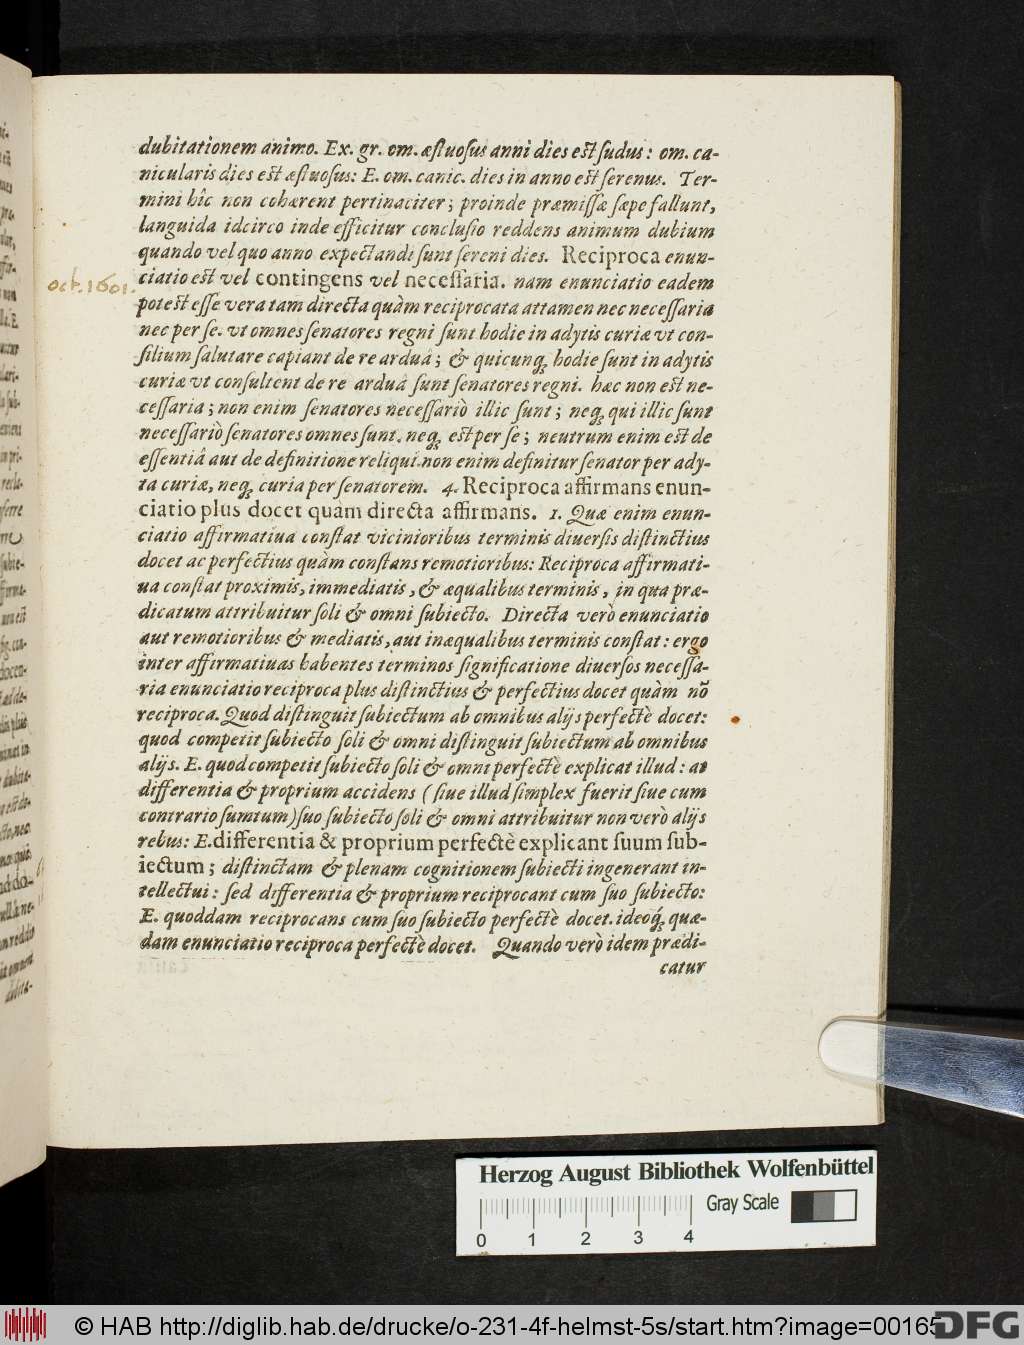 dubitationem animo. Ex. gr. om. æſtuoſus anni dies eſt ſudus: om. ca-
nicularis dies eſt æſtuoſus: E. om. canic. dies in anno eſt ſerenus. Ter-
mini hîc non cohærent pertinaciter; proinde præmiſſæ ſæpe fallunt,
languida idcirco inde efficitur concluſio reddens animum dubium
quando vel quo anno expectandi ſunt ſereni dies. Reciproca enun-
ciatio eſt vel contingens vel neceſſaria. nam enunciatio eadem
oct. 1601.
poteſt eſſe vera tam directa quàm reciprocata attamen nec neceſſaria
nec per ſe. vt omnes ſenatores regni ſunt hodie in adytis curiæ vt con-
ſilium ſalutare capiant de re arduâ; & quicunq; hodie ſunt in adytis
curiæ vt conſultent de re arduâ ſunt ſenatores regni. hæc non eſt ne-
ceſſaria; non enim ſenatores neceſſariò illic ſunt; neq; qui illic ſunt
neceſſariò ſenatores omnes ſunt. neq; eſt per ſe; neutrum enim eſt de
eſſentiâ aut de definitione reliqui. non enim definitur ſenator per ady-
ta curiæ, neq; curia per ſenatorem. 4. Reciproca affirmans enun-
ciatio plus docet quàm directa affirmans. 1. Quæ enim enun-
ciatio affirmatiua conſtat vicinioribus terminis diuerſis diſtinctius
docet ac perfectius quàm conſtans remotioribus: Reciproca affirmati-
ua conſtat proximis, immediatis, & æqualibus terminis, in qua præ-
dicatum attribuitur ſoli & omni ſubiecto. Directa verò enunciatio
aut remotioribus & mediatis, aut inæqualibus terminis conſtat: ergo
inter affirmatiuas habentes terminos ſignificatione diuerſos neceſſa-
ria enunciatio reciproca plus diſtinctius & perfectius docet quàm nō
reciproca. Quod diſtinguit ſubiectum ab omnibus alijs perfectè docet:
quod competit ſubiecto ſoli & omni diſtinguit ſubiectum ab omnibus
alijs. E. quod competit ſubiecto ſoli & omni perfectè explicat illud: at
differentia & proprium accidens (ſiue illud ſimplex fuerit ſiue cum
contrario ſumtum) ſuo ſubiecto ſoli & omni attribuitur non verò alijs
rebus: E. differentia & proprium perfectè explicant ſuum ſub-
iectum; diſtinctam & plenam cognitionem ſubiecti ingenerant in-
tellectui: ſed differentia & proprium reciprocant cum ſuo ſubiecto:
E. quoddam reciprocans cum ſuo ſubiecto perfectè docet. ideoq; quæ-
dam enunciatio reciproca perfectè docet. Quando verò idem prædi-
catur
Herzog August Bibliothek Wolfenbüttel
Gray Scale
0 1 2 3 4
© HAB http://diglib.hab.de/drucke/o-231-4f-helmst-5s/start.htm?image=00165
DFG